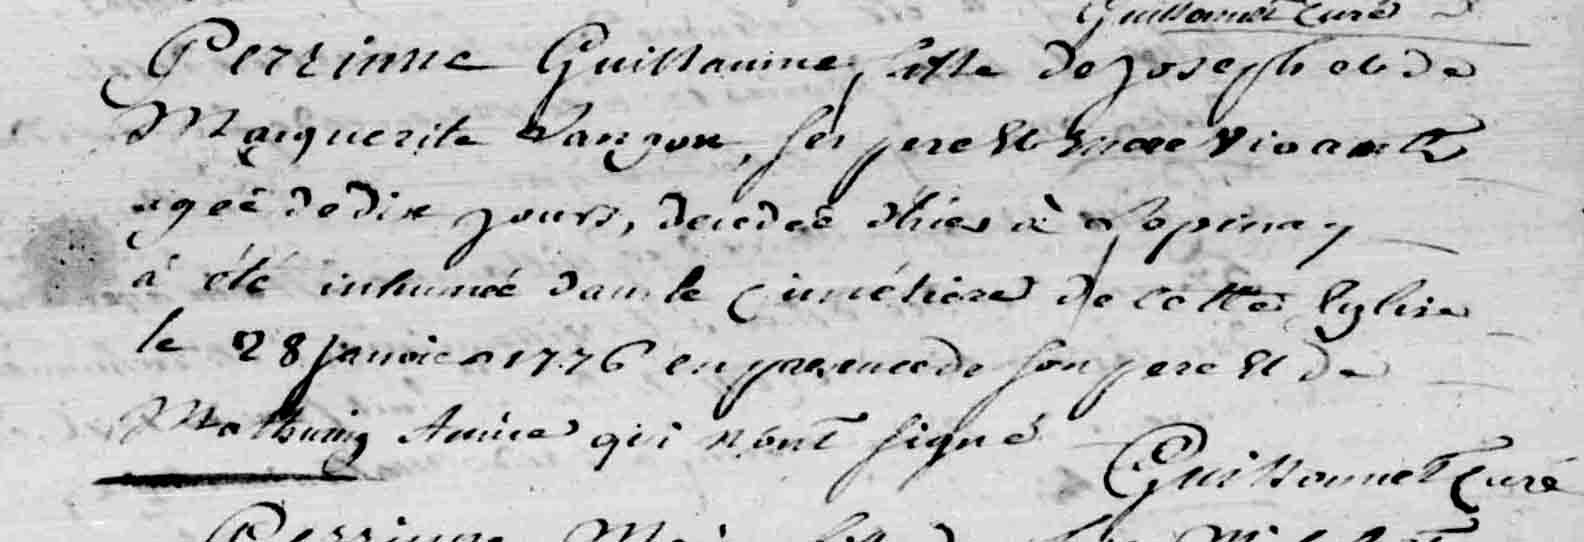 Guillonnet Curé
Perrinne Guillaume, fille de joseph et de
Marguerite ses pere et mere vivants
agée de dix jours, decedée d'hier à Lepinay
à été inhumée dans le cimétiere de cette Eglise
le 28 janvier 1776 en presence de son pere et de
Mathurin qui n'ont signé
Guillonnet Curé
Perrinne